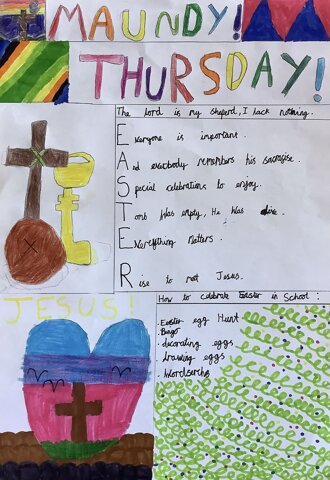 MAUNDY!
THURSDAY!
The lord is my sheperd, I lack nothing.
Everyone is important.
And everybody remembers his sacrifise.
Special celebrations to enjoy.
Tomb was empty, He was alive.
Everything matters.
Rise to not Jesus.
JESUS!
How to celebrate Easter in School:
• Easter egg Hunt
• Bingo
• decorating eggs
• drawing eggs
• Wordserchs